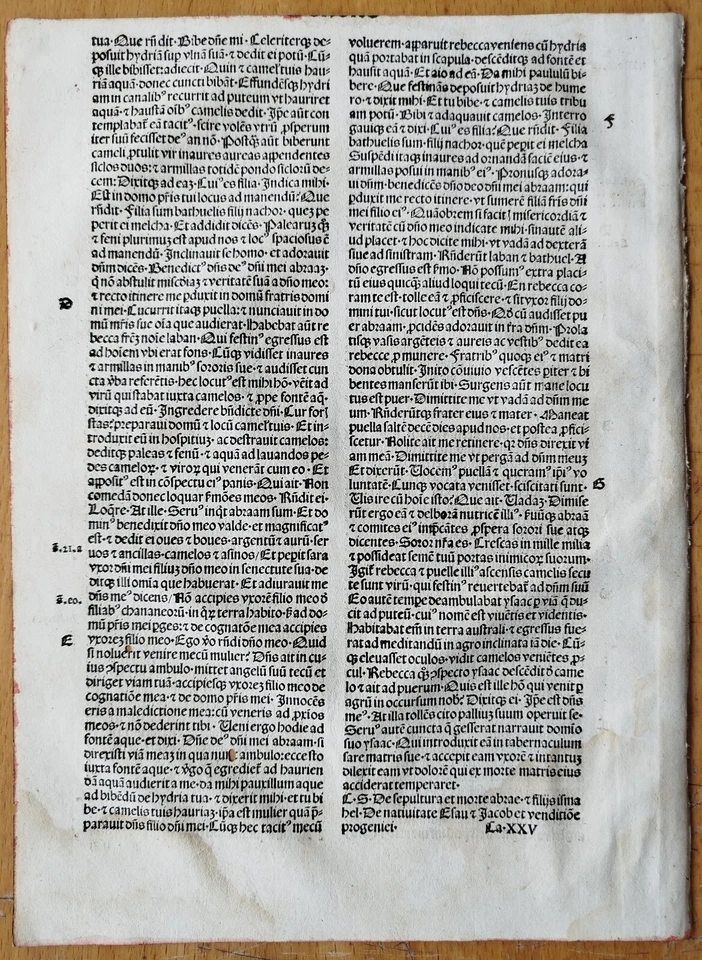 tua. Que rñdit. Bibe dñe mi. Celeriterqꝫ de-
posuit hydriã sup vlnã suã. ⁊ dedit ei potũ. Cũ-
qꝫ ille bibisset: adiecit. Quin ⁊ camel'tuis hau-
riã aquã donec cuncti bibãt. Effundẽsqꝫ hydri
am in canalibꝰ recurrit ad puteum vt hauriret
aquã. ⁊ haustã oĩbꝰ camelis dedit. Ip̃e aũt con
templabat̃ eã tacitꝰ. scire volẽs vtrũ ꝓsperum
iter suũ fecisset deꝰ an nõ. Postq̃ꝫ aũt biberunt
cameli ꝓtulit vir inaures aureas appendentes
siclos duos: ⁊ armillas totidẽ pondo siclorũ de-
cem: Dixitqꝫ ad eaꝫ. Cuiꝰ es filia? Indica mihi.
Est in domo pr̃is tui locus ad manendũ? Que
rñdit. Filia sum bathuelis filij nachor. queꝫ pe
perit ei melcha. Et addidit dicẽs. Palearuꝫ q̃ꝫ
⁊ feni plurimuꝫ est apud nos ⁊ locꝰ spaciosus ẽ
ad manendũ. Inclinauit se homo. ⁊ adorauit
dñm dicẽs. Benedictꝰ dñs deꝰ dñi mei abraaꝫ.
q̃ nõ abstulit mĩcdiaꝫ ⁊ veritatẽ suã a dño meo.
⁊ recto itinere me ꝑduxit in domũ fratris domi
D
ni mei. Cucurrit itaqꝫ puella: ⁊ nunciauit in do
mũ mr̃is sue oĩa que audierat. Habebat aũt re
becca frẽꝫ noĩe laban. Qui festinꝰ egressus est
ad hoĩem vbi erat fons. Cũqꝫ vidisset inaures
⁊ armillas in manibꝰ sororis sue. ⁊ audisset cun
cta ṽba referẽtis. hec locutꝰ est mihi hõ. vẽit ad
virũ qui stabat iuxta camelos. ⁊ ꝓpe fontẽ aq̃.
dixitqꝫ ad eũ. Ingredere bñdicte dñi. Cur forĩ
stas? preparaui domũ ⁊ locũ camel'tuis. Et in-
troduxit eũ in hospitiũ. ac destrauit camelos:
deditqꝫ paleas ⁊ fenũ. ⁊ aquã ad lauandos pe-
des cameloꝝ. ⁊ viroꝝ qui venerãt cum eo. Et
appositꝰ est in cõspectu eiꝰ panis. Qui ait. Non
comedã donec loquar sermões meos. Rñdit ei.
Loq̃re. At ille. Seruꝰ inq̃t abraam sum. Et do
minꝰ benedixit dño meo valde. ⁊ magnificatꝰ
est. ⁊ dedit ei oues ⁊ boues. argentũ ⁊ aurũ. ser
ẽ.21.a
uos ⁊ ancillas. camelos ⁊ asinos/ Et pepit sara
vxor dñi mei filiuꝫ dño meo in senectute sua. de
ditqꝫ illi omĩa que habuerat. Et adiurauit me
dñs meꝰ dicens/ Nõ accipies vxorẽ filio meo ð
ẽ.eo.
filiabꝰ chananeorũ. in q̃ꝝ terra habito. sed ad do-
mũ pr̃is mei ꝑges: ⁊ de cognatõe mea accipies
E
vxoreꝫ filio meo. Ego ṽo rñdi dño meo. Quid
si noluerit venire mecũ mulier? Dñs ait in cu-
ius ꝯspectu ambulo. mittet angelũ suũ tecũ et
diriget viam tuã. accipiesqꝫ vxoreꝫ filio meo de
cognatiõe mea. ⁊ de domo pr̃is mei. Innocẽs
eris a maledictione mea: cũ veneris ad ꝓxĩos
meos. ⁊ nõ dederint tibi. Veni ergo hodie ad
fontẽ aque. et dixi. Dñe deꝰ dñi mei abraam. si
direxisti viã meaꝫ in qua nunc ambulo: ecce sto
iuxta fontẽ aque. ⁊ ṽgo q̃ egrediet̃ ad haurien
dã aquã audierit a me. da mihi pauxillum aque
ad bibẽdũ de hydria tua. ⁊ dixerit mihi. et tu bi
be. ⁊ camelis tuis hauriaꝫ. ip̃a est mulier quã p̃-
parauit dñs filio dñi mei. Cũqꝫ hec tacitꝰ mecũ
voluerem. apparuit rebecca veniens cũ hydria
quã portabat in scapula. descẽditqꝫ ad fontẽ et
hausit aquã. Et aio ad eã. Da mihi paululũ bi-
bere. Que festinãs deposuit hydriaꝫ de hume
ro. ⁊ dixit mihi. Et tu bibe. ⁊ camelis tuis tribu
am potũ. Bibi ⁊ adaquauit camelos. Interro
F
gauiqꝫ eã ⁊ dixi. Cuiꝰ es filia? Que rñdit. Filia
bathuelis sum. filij nachor. quẽ pepit ei melcha
Suspẽdi itaqꝫ inaures ad ornandã faciẽ eius. ⁊
armillas posui in manibꝰ eiꝰ. Pronusqꝫ adora-
ui dñm. benedicẽs dño deo dñi mei abraam: qui
ꝑduxit me recto itinere. vt sumerẽ filiã fr̃is dñi
mei filio eiꝰ. Quãobrem si facit] misericordiã ⁊
veritatẽ cũ dño meo indicate mihi. sin autẽ ali-
ud placet. ⁊ hoc dicite mihi. vt vadã ad dexterã
siue ad sinistram. Rñderũt laban ⁊ bathuel. A
dño egressus est sermo. Nõ possumꝰ extra placi-
tũ eius quicq̃ꝫ aliud loqui tecũ. En rebecca co-
ram te est. tolle eã ⁊ ꝓficiscere. ⁊ sit vxor filij do-
mini tui. sicut locutꝰ est dñs. Qð cũ audisset pu
er abraam. ꝓcidẽs adorauit in terra dñm. Prola
tisqꝫ vasis argẽteis ⁊ aureis ac vestibꝰ dedit ea
rebecce ꝓ munere. Fratribꝰ quoqꝫ eiꝰ ⁊ matri
dona obtulit. Inito cõuiuio vescẽtes ꝑiter ⁊ bi
bentes manserũt ibi. Surgens aũt mane locu
tus est puer. Dimittite me vt vadã ad dñm me
um. Rñderũtqꝫ frater eius ⁊ mater. Maneat
puella saltẽ decẽ dies apud nos. et postea ꝓfici-
scetur. Nolite ait me retinere. qꝛ dñs direxit vi
am meã. Dimittite me vt pergã ad dñm meuꝫ
Et dixerũt. Vocemꝰ puellã ⁊ queramꝰ ip̃iꝰ vo
luntatẽ. Cunqꝫ vocata venisset. sciscitati sunt.
G
Vis ire cũ hoĩe isto? Que ait. Vadaꝫ. Dimise
rũt ergo eã ⁊ delborã nutricẽ illiꝰ. seruũqꝫ abraã
⁊ comites eiꝰ imp̃cãtes ꝓspera sorori sue atqꝫ
dicentes. Soror nr̃a es. Crescas in mille milia
⁊ possideat semẽ tuũ portas inimicoꝝ suorum.
Igit̃ rebecca ⁊ puelle illiꝰ ascensis camelis secu
te sunt virũ. qui festinꝰ reuertebat̃ ad dñm suũ
Eo autẽ tempe deambulabat ysaac ꝑ viã q̃ du-
cit ad puteũ. cuiꝰ nomẽ est viuẽtis et videntis.
Habitabat em̃ in terra australi. ⁊ egressus fue-
rat ad meditandũ in agro inclinata iã die. Cũ-
qꝫ eleuasset oculos. vidit camelos veniẽtes ꝓ-
cul. Rebecca q̃ꝫ ꝯspecto ysaac descẽdit ð came
lo ⁊ ait ad puerum. Quis est ille hõ qui venit ꝑ
agrũ in occursum nobꝭ? Dixitqꝫ eiꝰ. Ip̃e est dñs
meꝰ. At illa tollẽs cito palliuꝫ suum operuit se.
Seruꝰ autẽ cuncta q̃ gesserat narrauit domĩo
suo ysaac. Qui introduxit eã in tabernaculum
sare matris sue. ⁊ accepit eam vxorẽ ⁊ intantuꝫ
dilexit eam vt dolorẽ qui ex morte matris eius
acciderat temperaret.
C. S. De sepultura et morte abrae. ⁊ filijs isma
hel. De natiuitate Esau ⁊ Jacob et venditiõe
progeniei. Ca. XXV